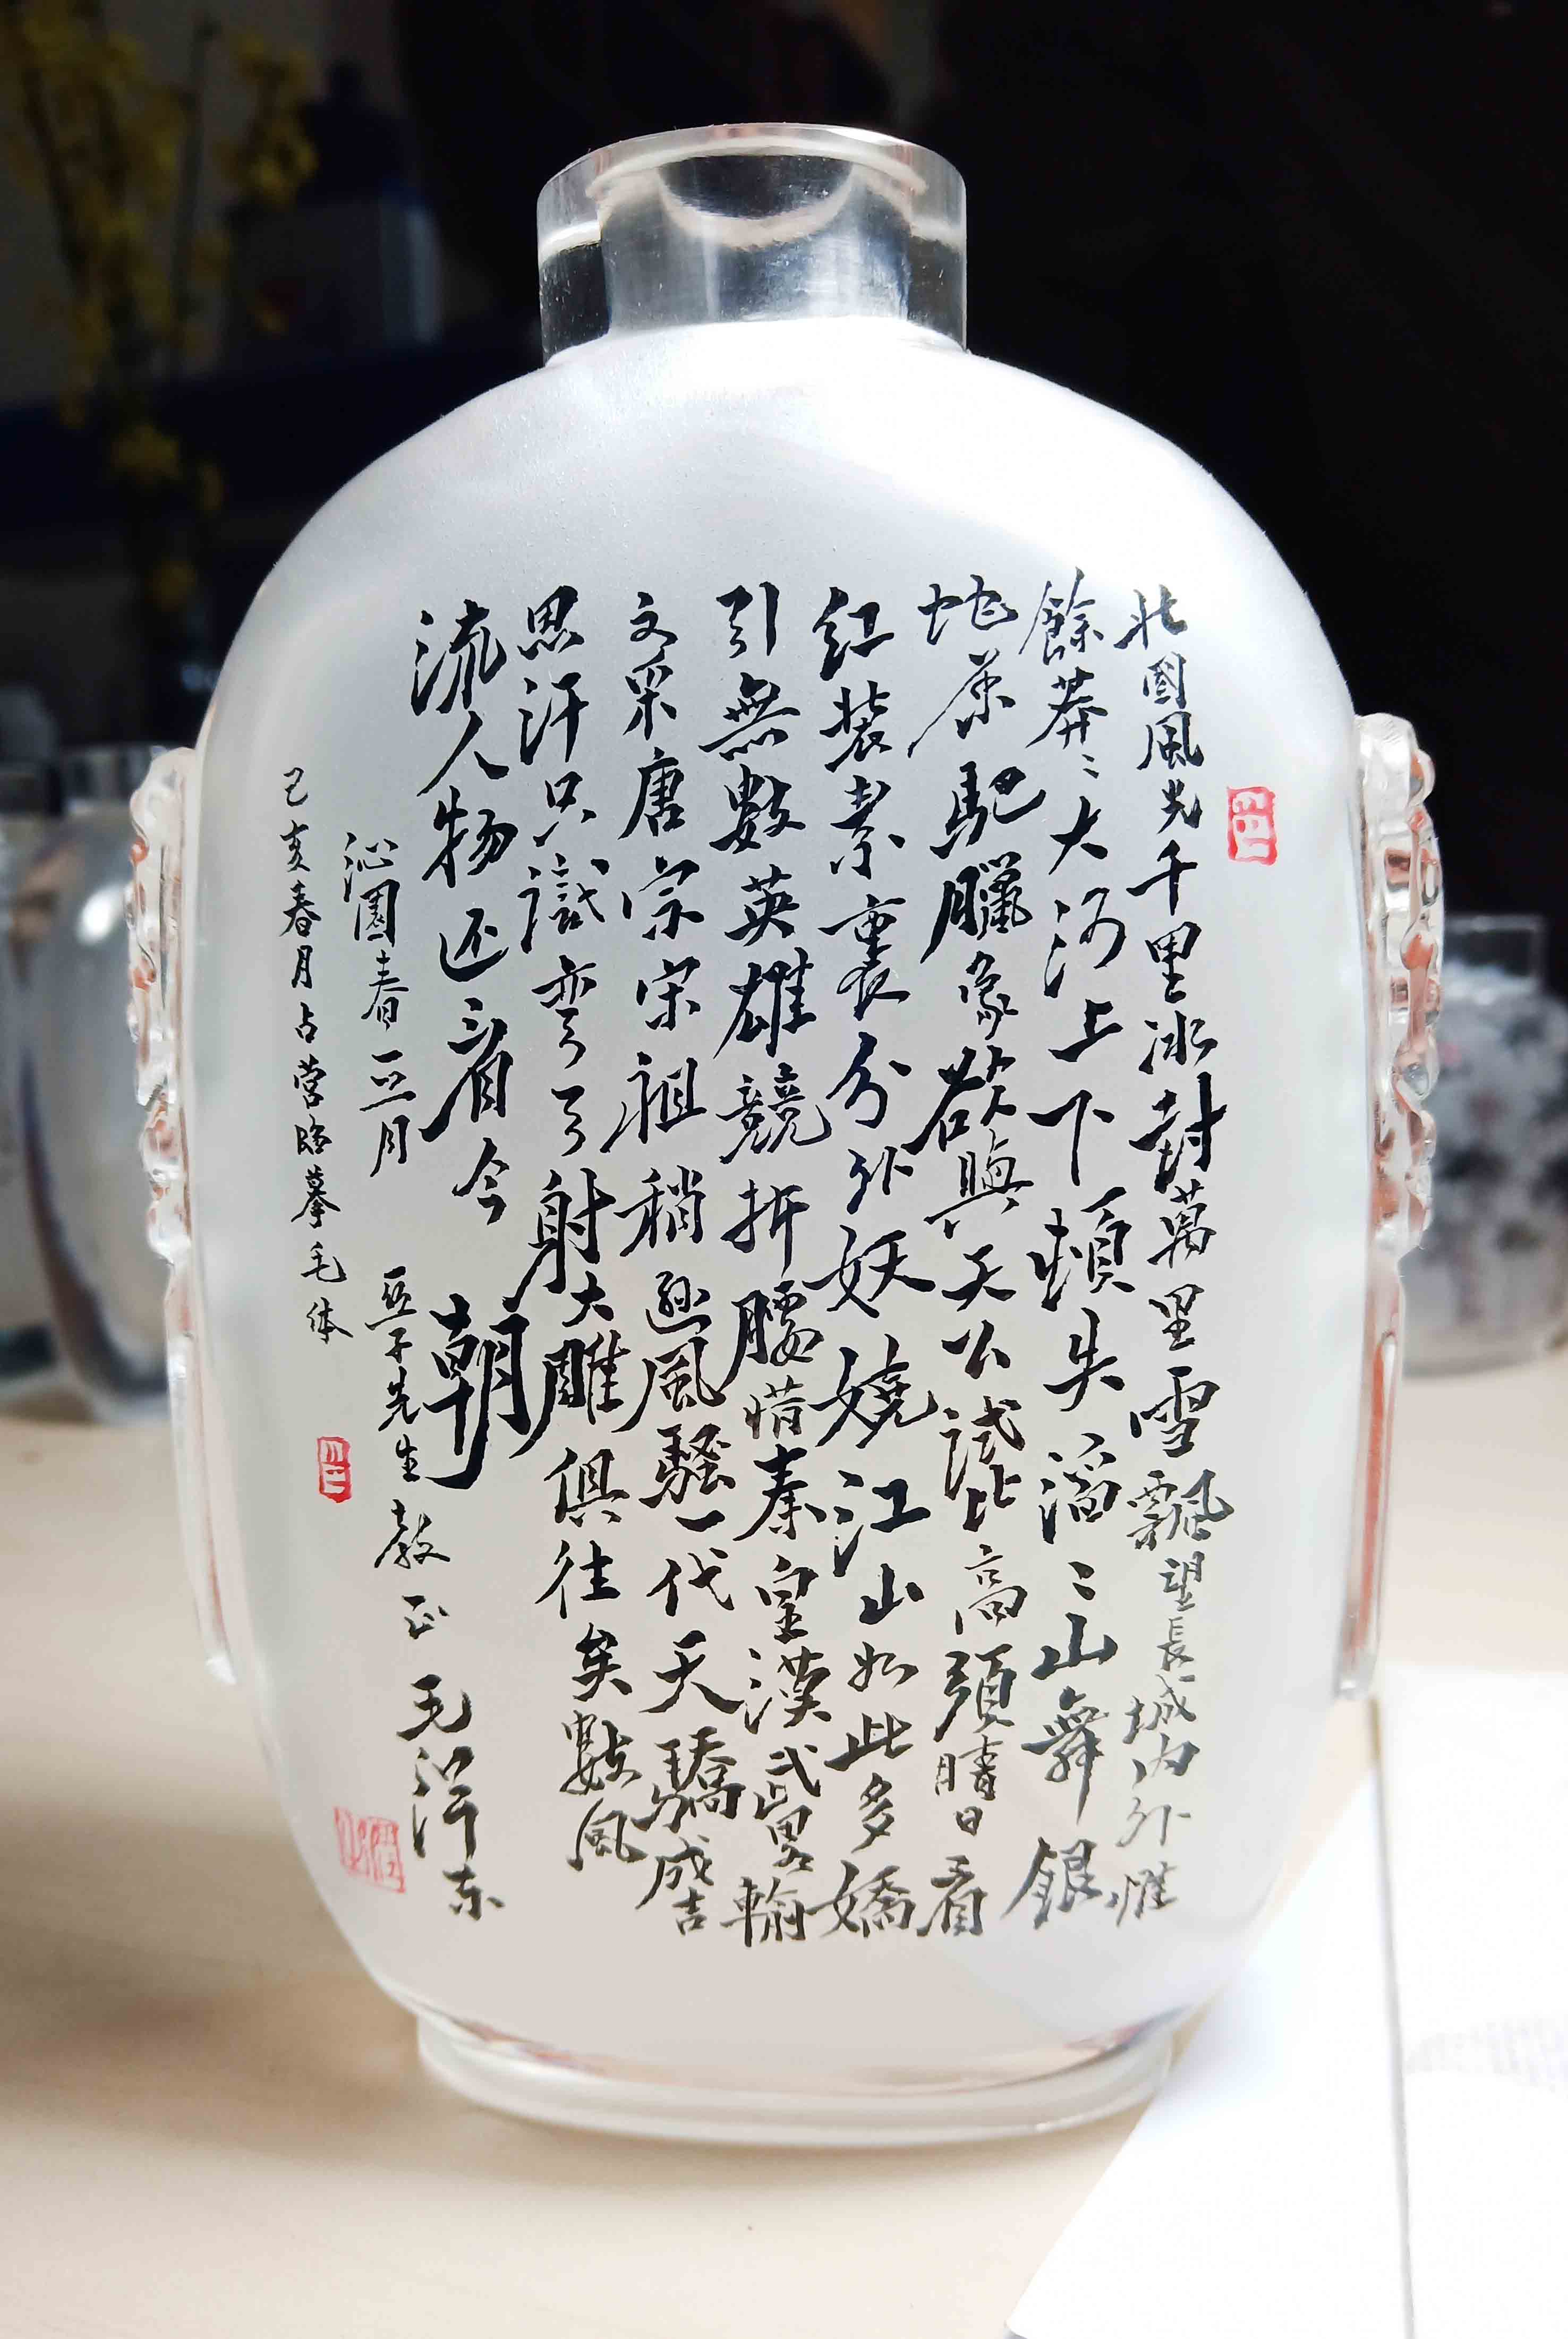 北國風光千里冰封萬里雪飄望長城内外惟
餘莽〻大河上下頓失滔〻山舞銀
蛇原馳臘象欲與天公試比高須晴日看
红装素裹分外妖嬈江山如此多嬌
引無數英雄競折腰惜秦皇漢武畧輸
文采唐宗宋祖稍遜風騷一代天驕成吉
思汗只識弯弓射大雕俱往矣數風
流人物还看今朝
沁園春
亞子先生教正 毛泽东
己亥春月占营臨摹毛体